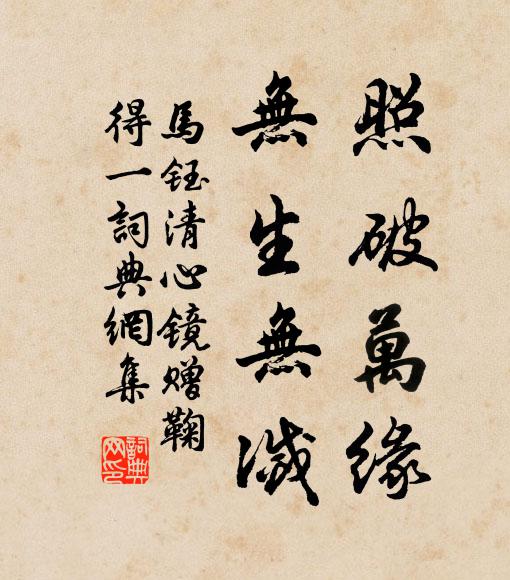 照破萬緣
無生無滅
馬鈺清心镜赠鞠
得一詞典網集
詞典
网印